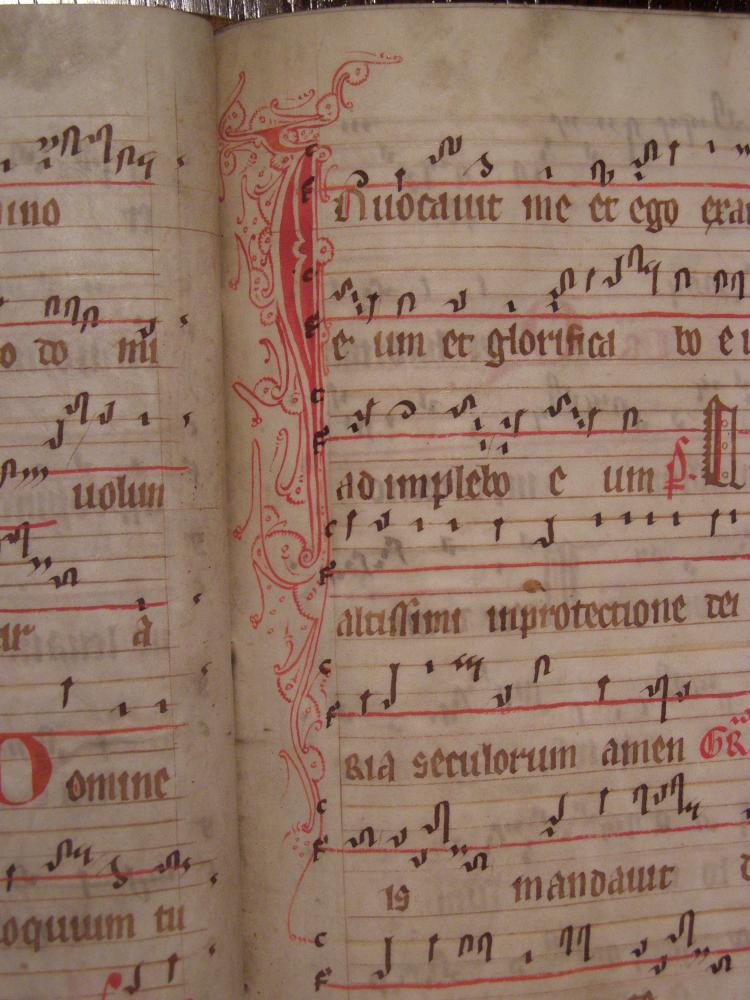 nino
o do mi
uolun
ur a
Domine
oquium tu
Inuocauit me et ego exau
e um et glorifica bo e u
adimplebo e um
altissimi inprotectione dei
ria seculorum amen GR
is mandauit d